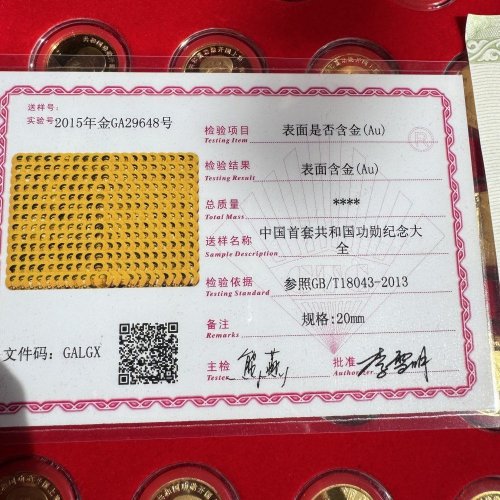 送样号:
实验号 2015年金GA29648号
检验项目 表面是否含金(Au)
Testing Item
检验结果 表面含金(Au)
Testing Result
总质量 ****
Total Mass
送样名称 中国首套共和国功勋纪念大
Sample Description 全
检验依据 参照GB/T18043-2013
Testing Standard
备注 规格:20mm
Remarks
文件码: GALGX
主检
Tester
批准
Authorizer